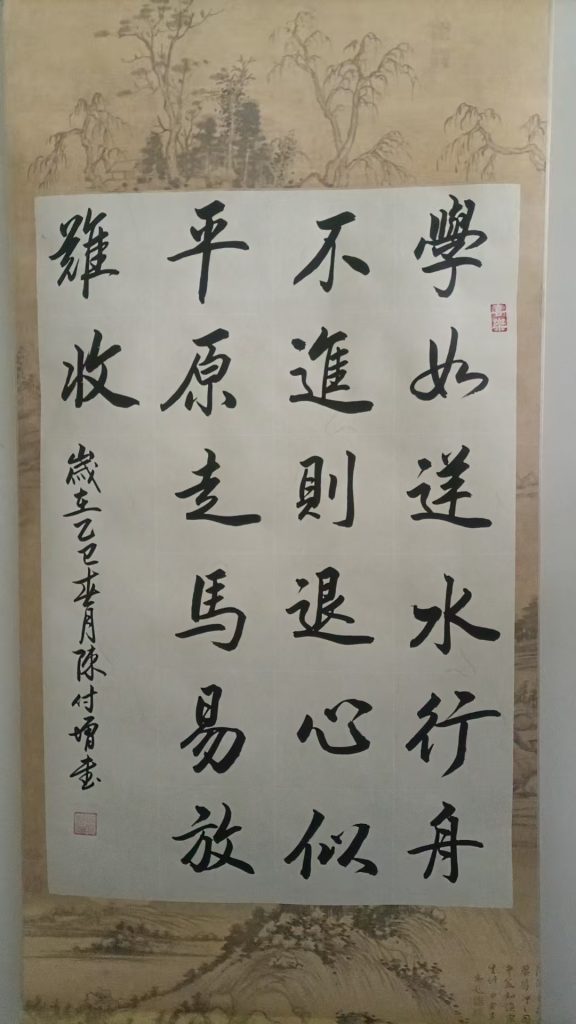 學如逆水行舟
不進則退心似
平原走馬易放
難收
歲在乙巳春月陳付增書